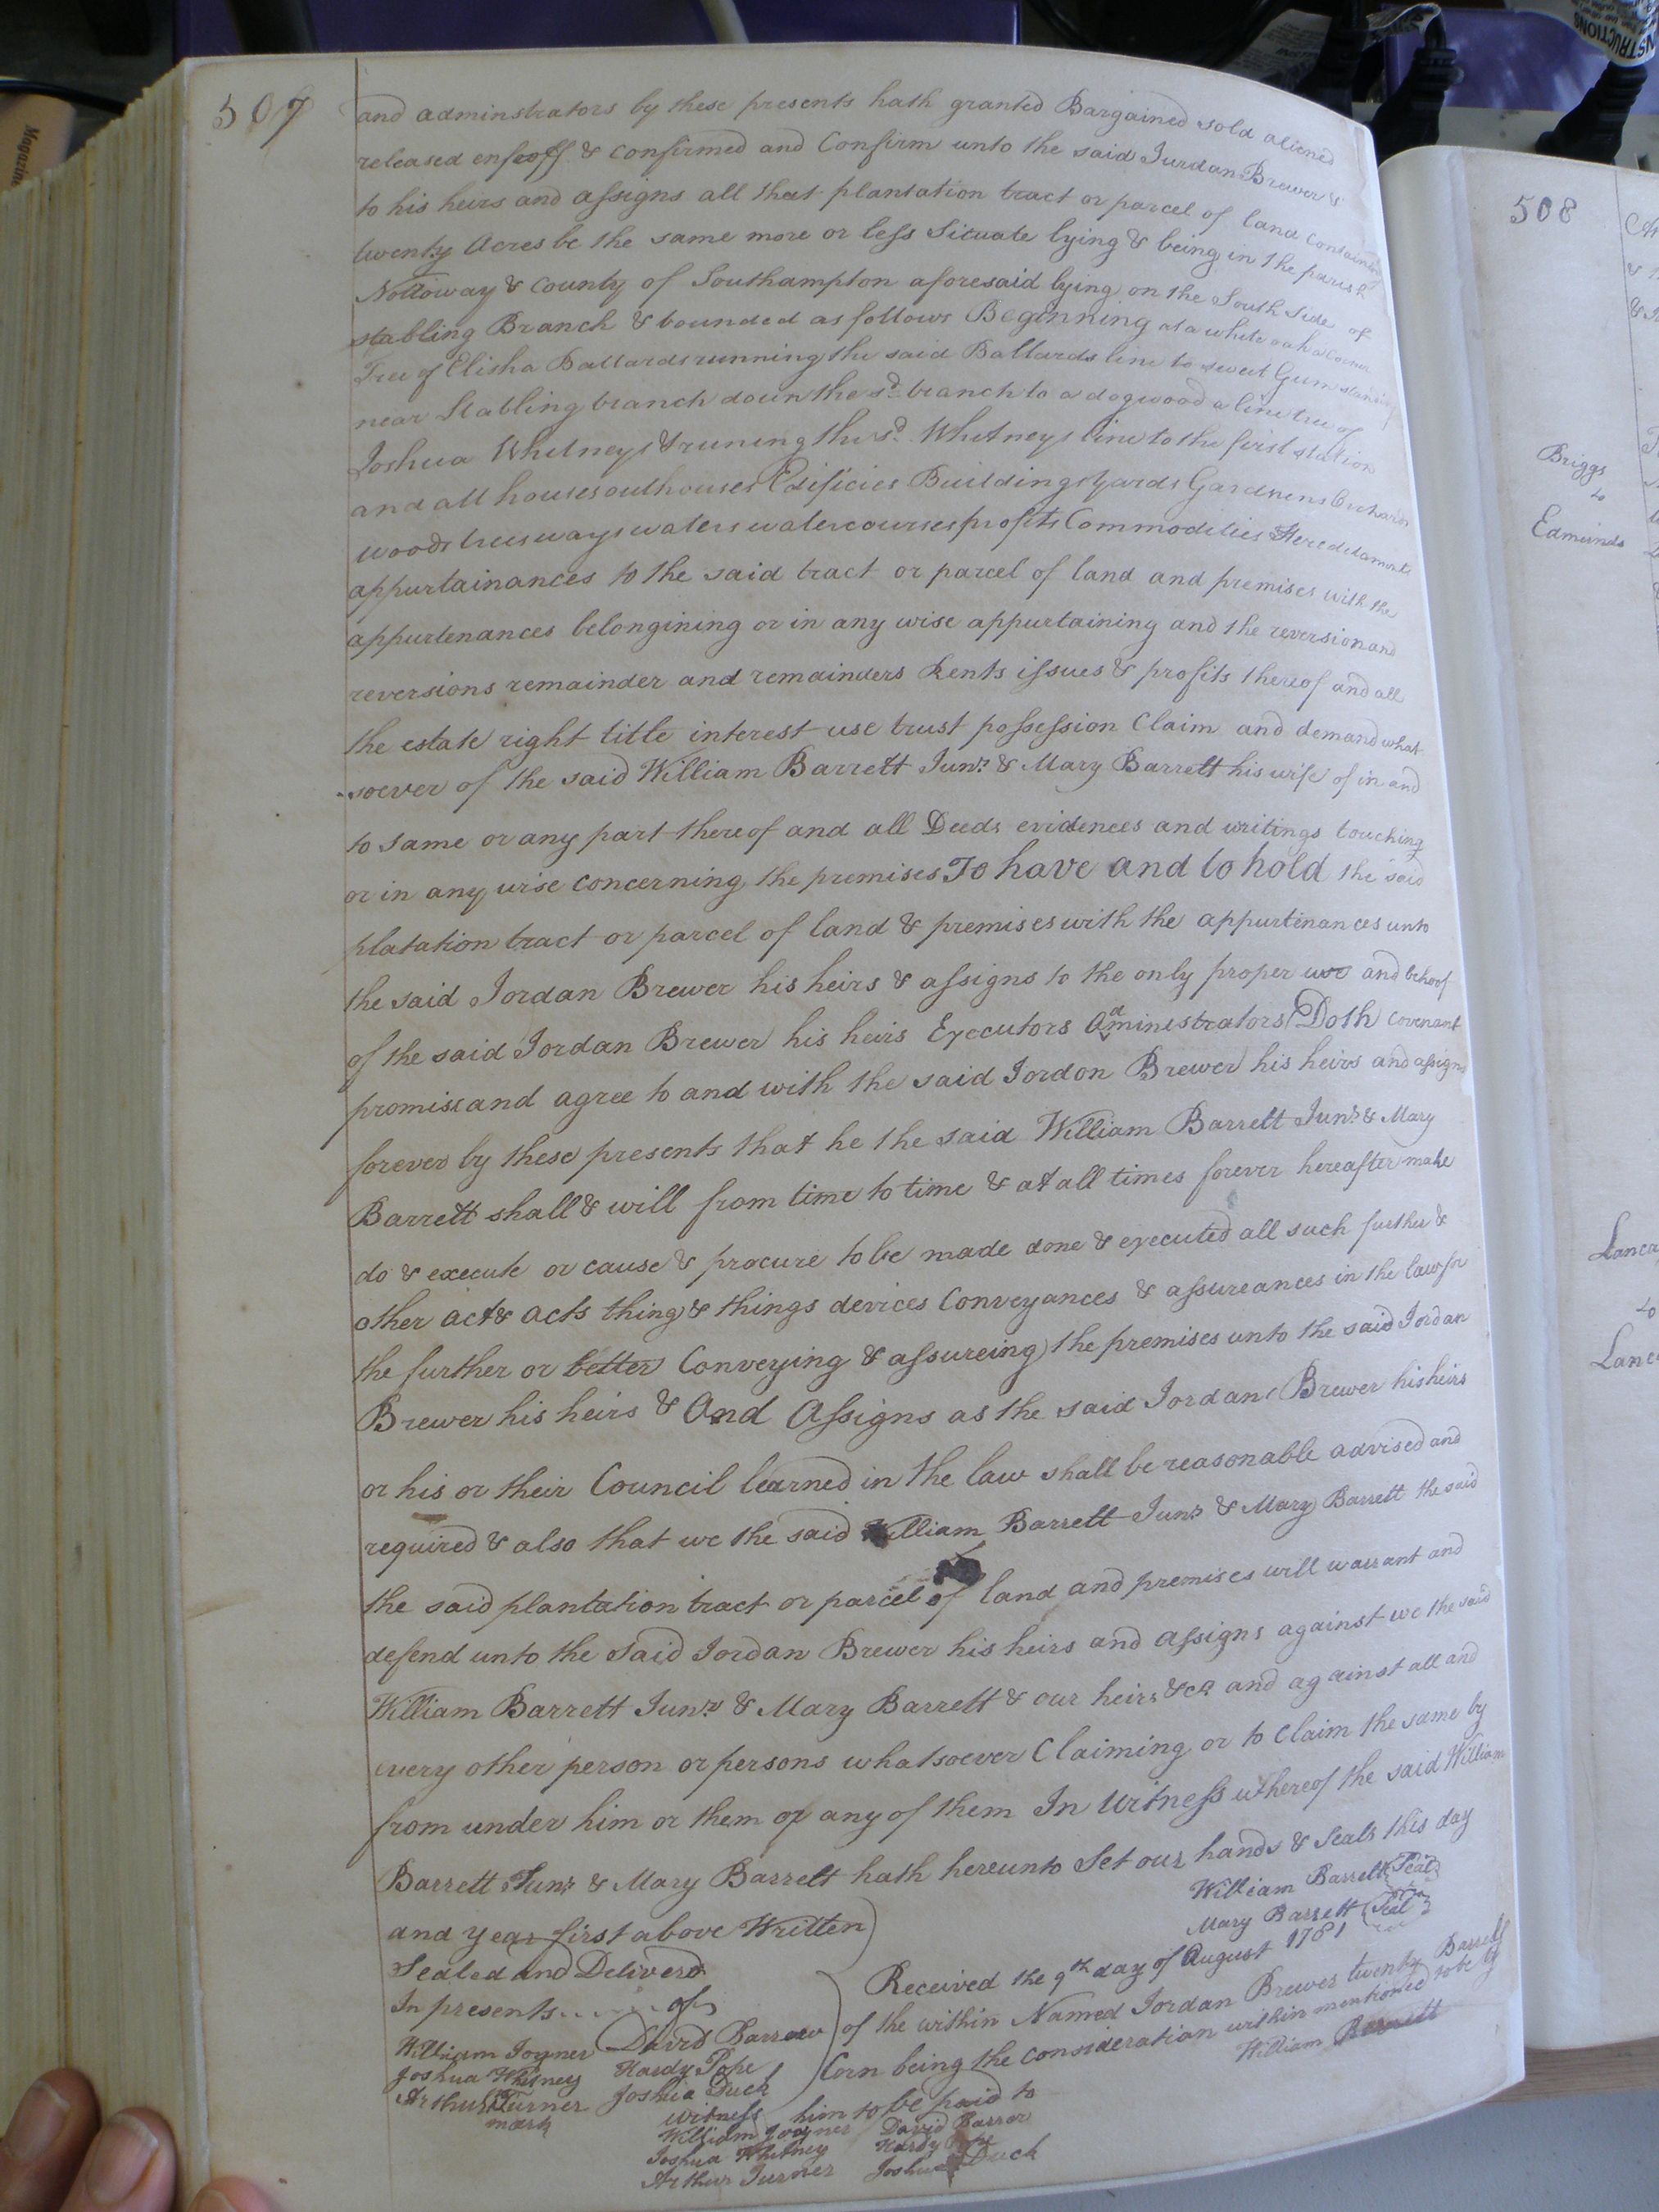 507
and adminstrators by these presents hath granted Bargained sold aliened
released enfeoff & confirmed and Confirm unto the said Jurdan Brewer &
to his heirs and assigns all that plantation tract or parcel of land containing
twenty Acres be the same more or less Situate lying & being in the parish
Nottoway & County of Southampton aforesaid lying on the South Side of
stabling Branch & bounded as follows Beginning at a white oak a Corner
Tree of Elisha Ballards running the said Ballards line to sweet Gum standing
near Stabling branch down the sd branch to a dogwood a line tree of
Joshua Whitneys & runing the sd. Whitneys line to the first station
and all houses outhouses Edificies Buildings yards Gardnens Orchards
woods trees ways waters watercourses profits Commodities Hereditaments
appurtainances to the said tract or parcel of land and premises with the
appurtenances belongining or in any wise appurtaining and the reversion and
reversions remainder and remainders Rents issues & profits thereof and all
the estate right title interest use trust possession Claim and demand what
-soever of the said William Barrett Junr. & Mary Barrett his wife of in and
to same or any part thereof and all Deeds evidences and writings touching
or in any wise concerning the premises To have and to hold the said
platation tract or parcel of land & premises with the appurtinances unto
the said Jordan Brewer his heirs & assigns to the only proper use and behoof
of the said Jordan Brewer his heirs Executors Administrators Doth covenant
promise and agree to and with the said Jordon Brewer his heirs and assigns
forever by these presents that he the said William Barrett Junr. & Mary
Barrett shall & will from time to time & at all times forever hereafter make
do & execute or cause & procure to be made done & executed all such further &
other act & acts thing & things devices Conveyances & assureances in the law for
the further or better Conveying & assureing the premises unto the said Jordan
Brewer his heirs & And Assigns as the said Jordan Brewer his heirs
or his or their Council learned in the law shall be reasonable advised and
required & also that we the said William Barrett Junr & Mary Barrett the said
the said plantation tract or parcel of land and premises will warrant and
defend unto the said Jordan Brewer his heirs and assigns against we the said
William Barrett Junr. & Mary Barrett & our heirs &ca and against all and
every other person or persons whatsoever Claiming or to Claim the same by
from under him or them or any of them In Witness whereof the said William
Barrett Junr & Mary Barrett hath hereunto Set our hands & Seals this day
and year first above Written
William Barrett Seal
Mary Barrett Seal
Sealed and Deliverd
In presents of
William Joyner David Barrow
Joshua Whitney Hardy Pope
Arthur Turner Joshua Duck
mark
Received the 9th day of August 1781
of the within Named Jordan Brewer twenty Barrell
Corn being the consideration within mentioned to be by
him to be paid to
William Barrett
witness
William Joyner David Barrow
Joshua Whitney Hardy Pope
Arthur Turner Joshua Duck
508
Briggs
to
Edmunds
to
Magazine